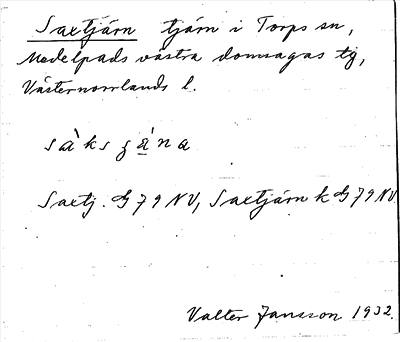 Saxtjärn tjärn i Torps sn,
Medelpads västra domsagas tg,
Västernorrlands l.
sàksʒá̱na
Saxtj. G 79 NV, Saxtjärn k G 79 NV.
Valter Jansson 1932.